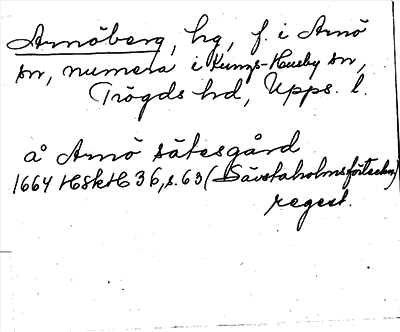 Arnöberg, hg, f. i Arnö
sn, numera i Kungs-Husby sn,
Trögds hd, Upps. l.
å Arnö sätesgård
1664 HSkH 36, s. 63 (Sävstaholmsförteckn)
regest.